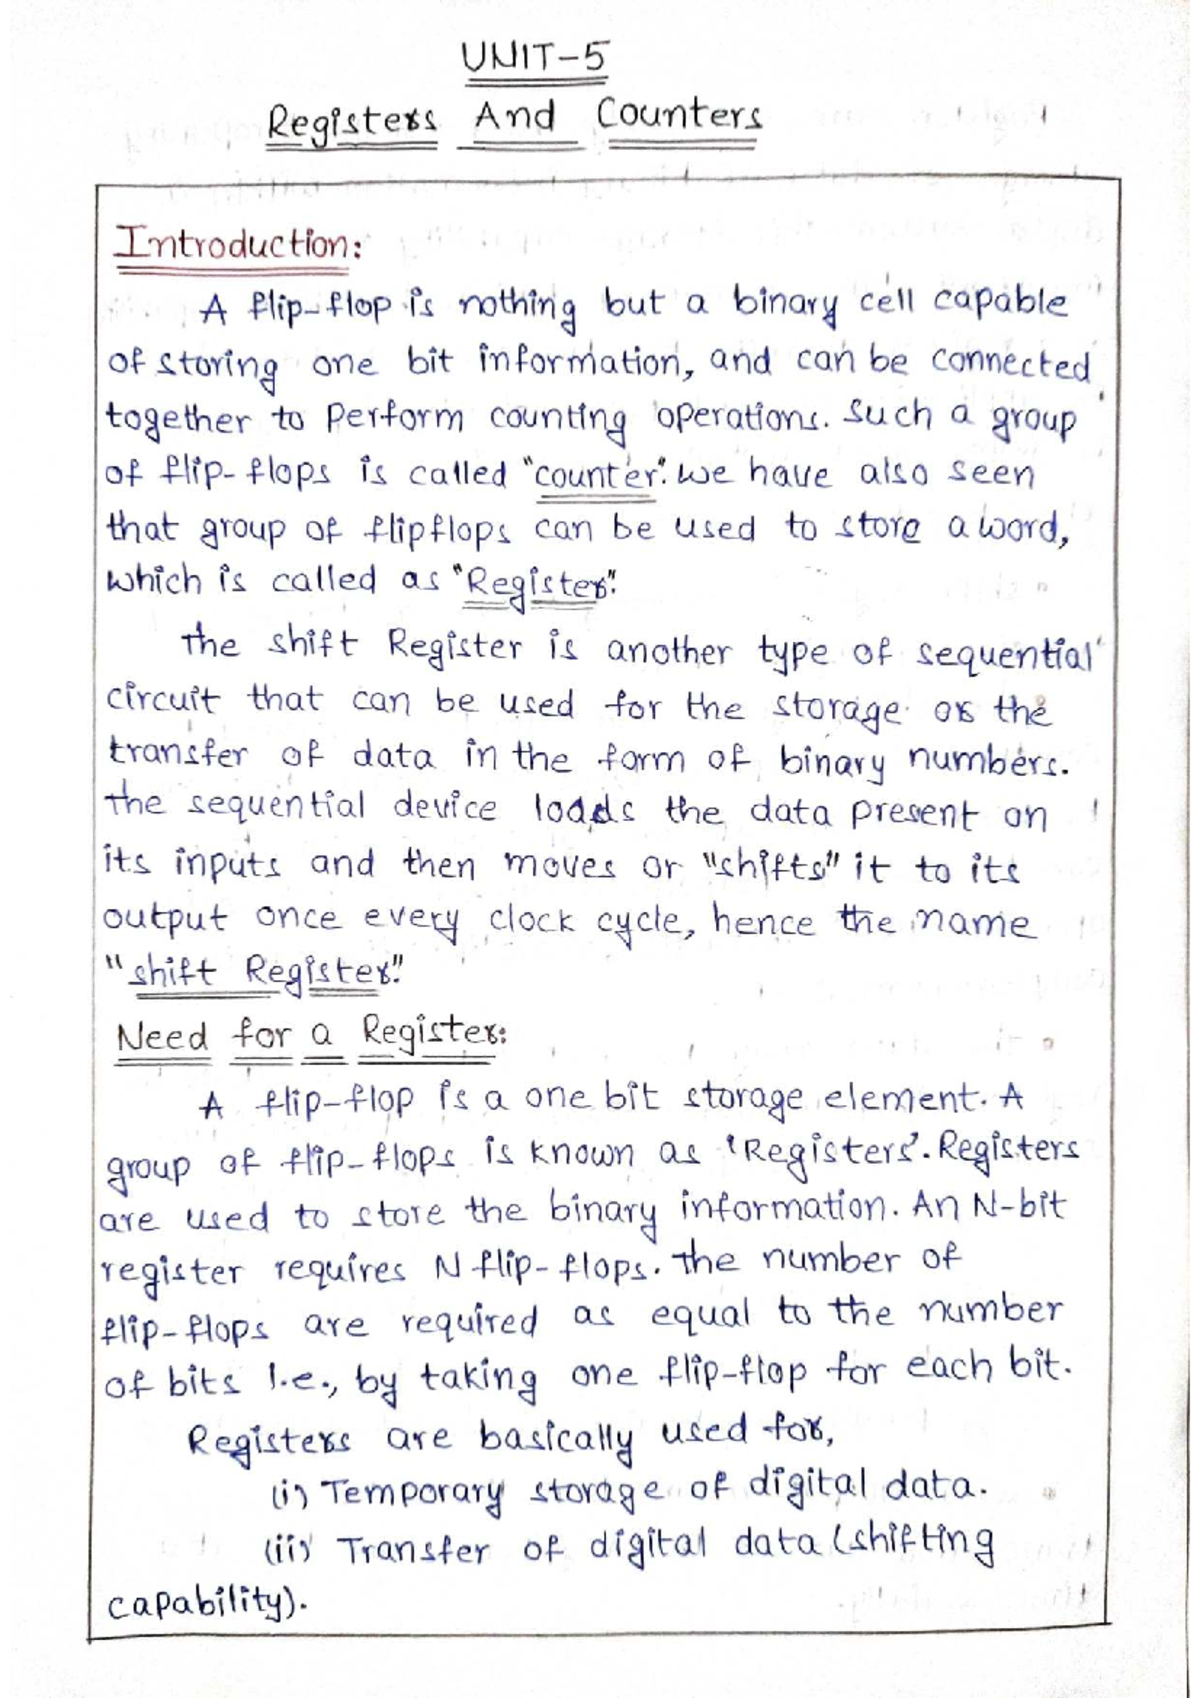 UNIT-5
Registers And Counters
Introduction:
A flip-flop is nothing but a binary cell capable
of storing one bit information, and can be connected
together to Perform counting operations. Such a group
of flip-flops is called "counter". we have also seen
that group of flipflops can be used to store a word,
which is called as "Register".
the shift Register is another type of sequential
circuit that can be used for the storage or the
transfer of data in the form of binary numbers.
the sequential device loads the data present on
its inputs and then moves or "shifts" it to its
output once every clock cycle, hence the name
"shift Register".
Need for a Register:
A flip-flop is a one bit storage element. A
group of flip-flops is known as 'Registers'. Registers
are used to store the binary information. An N-bit
register requires N flip-flops. the number of
flip-flops are required as equal to the number
of bits I.e., by taking one flip-flop for each bit.
Registers are basically used for,
(i) Temporary storage of digital data.
(ii) Transfer of digital data (shifting
capability).